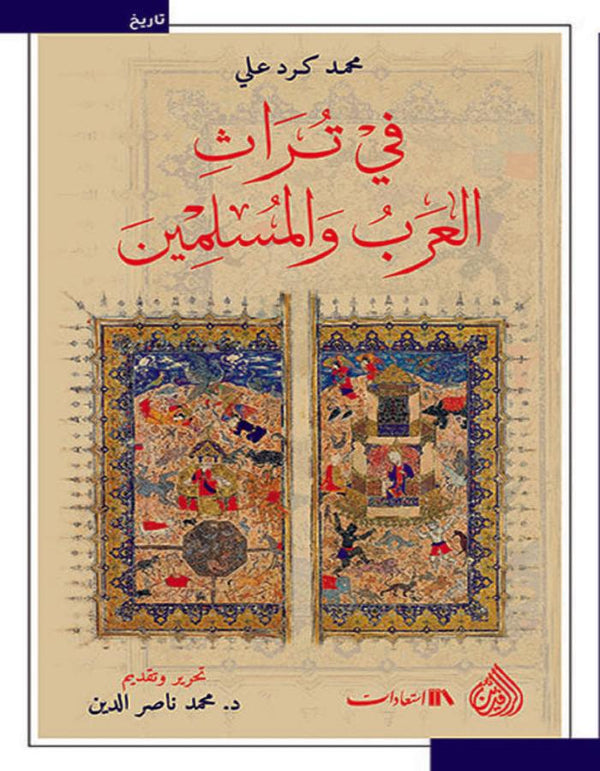 تاريخ
محمد كرد علي
في تُرَاثِ
العَرَبُ وَالمُسْلِمِينَ
تحرير وتقديم
د. محمد ناصر الدين
استعادات
الرافدين